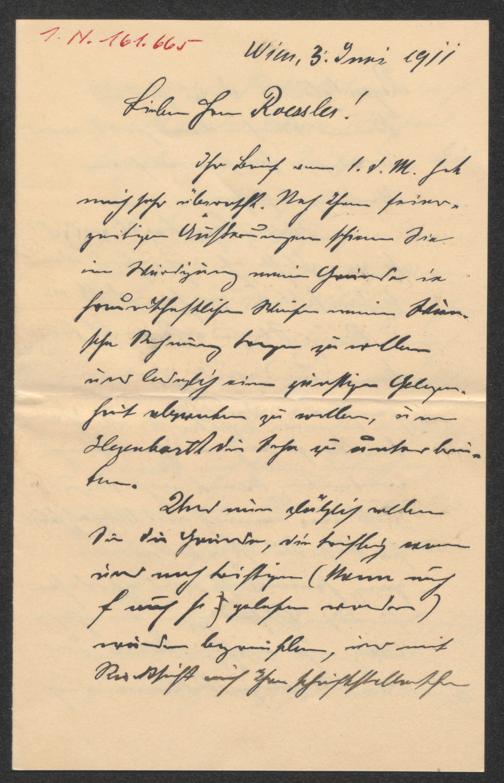 I. N. 161.665
Wien, 3. Juni 1911
Lieber Herr Roessler!
Ihr Brief vom 1. d. M. hat
mich sehr überrascht. Nach Ihren seiner-
zeitigen Äußerungen schienen Sie
in Würdigung meiner Gründe in
freundschaftlicher Weise meinen Wün-
schen Rechnung tragen zu wollen
und lediglich eine günstige Gelegen-
heit abwarten zu wollen, um
die Sache zu unterbrei-
ten.
Und nun plötzlich wollen
Sie die Gründe, die triftig waren
und noch triftiger (wenn auch
) geworden
wurden bezweifeln, und mit
Rücksicht auf Ihren schriftstellerischen